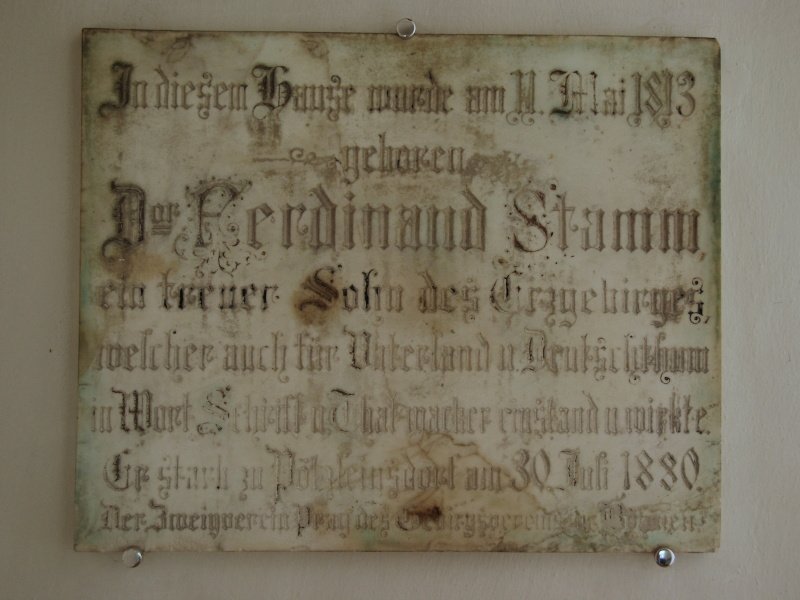 In diesem Hause wurde am 11. Mai 1813
geboren
Dor Ferdinand Stamm,
ein treuer Sohn des Erzgebirges,
welcher auch für Vaterland u. Deutschthum
in Wort Schrift u. That wacker einstand u. wirkte.
Er starb zu Pötzleinsdorf am 30. Juli 1880
Der Zweigverein Prag des Gebirgsvereins für Böhmen